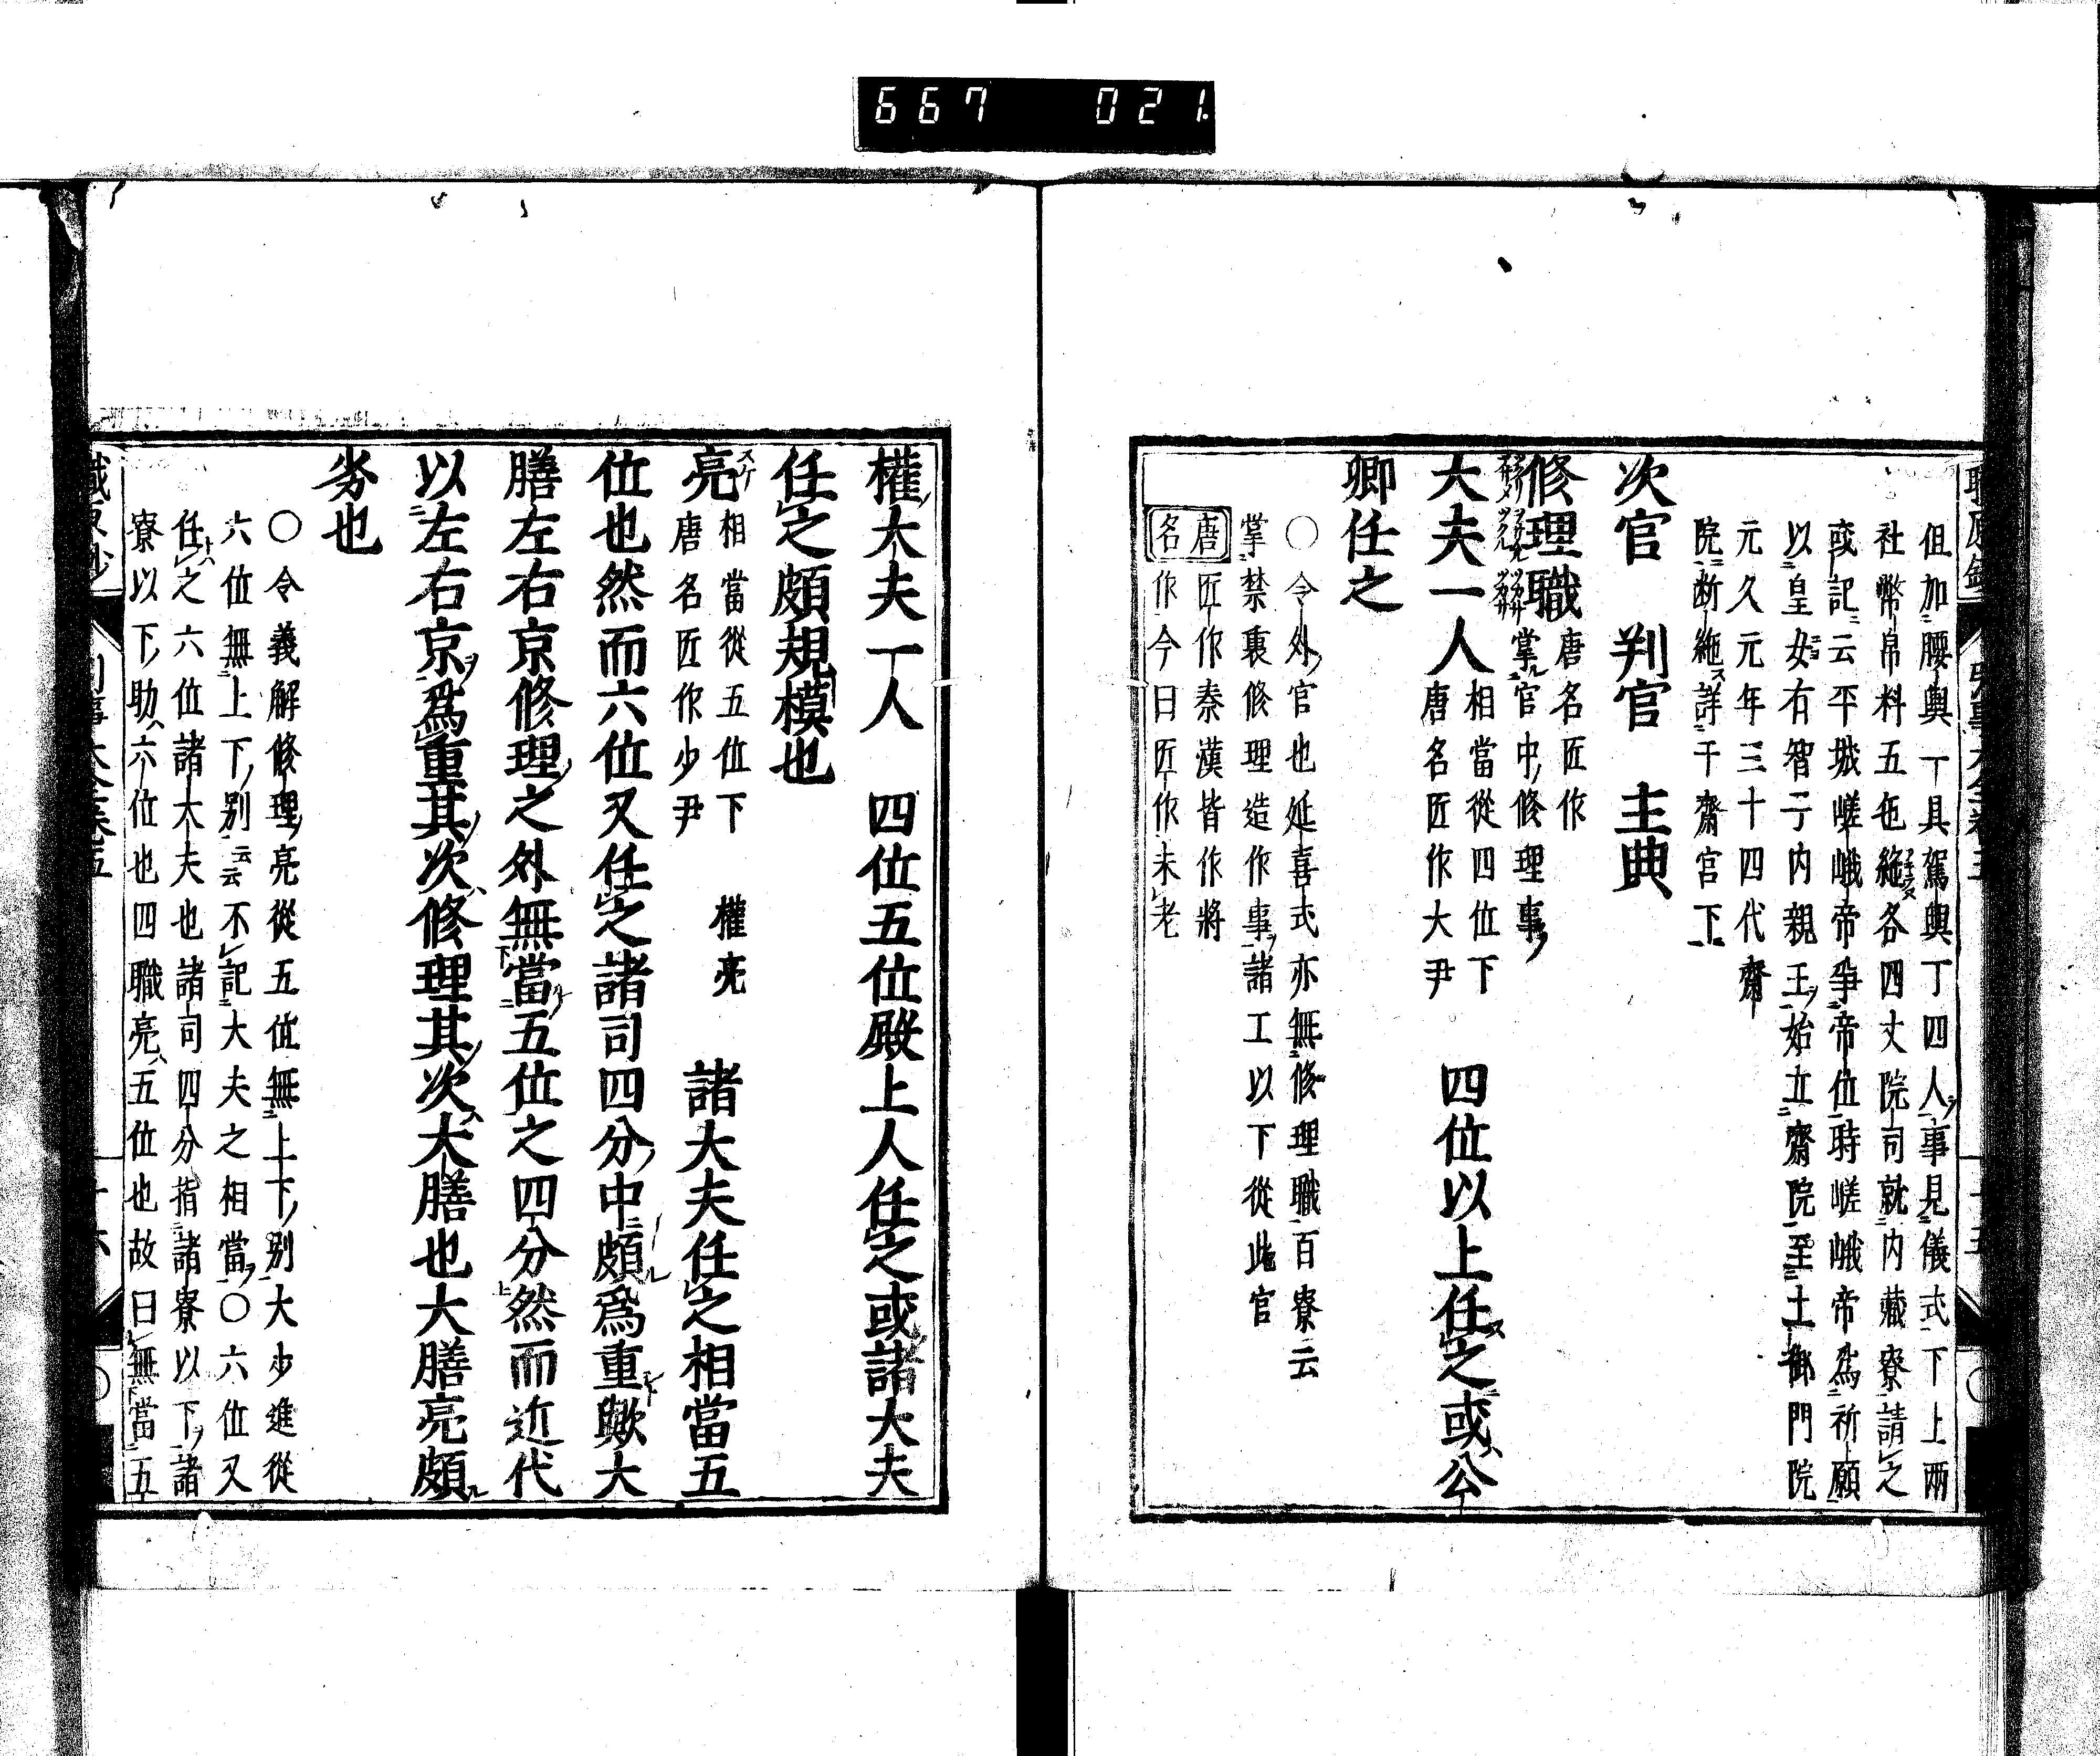 667 021.
但加腰輿一具駕輿丁四人事見儀式下上兩
社幣帛料五色絁各四丈院司就内藏寮請之
或記云平城嵯峨帝爭帝位時嵯峨帝爲祈願
以皇女有智子内親王始立齋院至土御門院
元久元年三十四代齋
院断絶詳于齋宮下
次官 判官 主典
修理職 唐名匠作
掌官中修理事
大夫一人 相當從四位下
唐名匠作大尹
四位以上任之或公
卿任之
〇令外官也延喜式亦無修理職百寮云
掌禁裏修理造作事諸工以下從此官
唐名 匠作秦漢皆作將
作今日匠作未老
權大夫一人 四位五位殿上人任之或諸大夫
任之頗規模也
亮 相當從五位下
唐名匠作少尹
權亮 諸大夫任之相當五
位也然而六位又任之諸司四分中頗爲重歟大
膳左右京修理之外無當五位之四分然而近代
以左右京爲重其次修理其次大膳也大膳亮頗
劣也
〇令義解修理亮從五位無上下別大少進從
六位無上下別云云不記大夫之相當〇六位又
任之六位諸大夫也諸司四分指諸寮以下諸
寮以下助六位也四職亮五位也故曰無當五